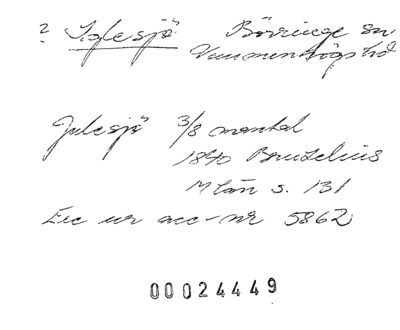 ? Iglesjö Börringe sn
Vemmenhögs hd
Julesjö 3/8 mantal
1840 Beurelius
M län s. 131
Exc ur acc-nr 5862
00024449